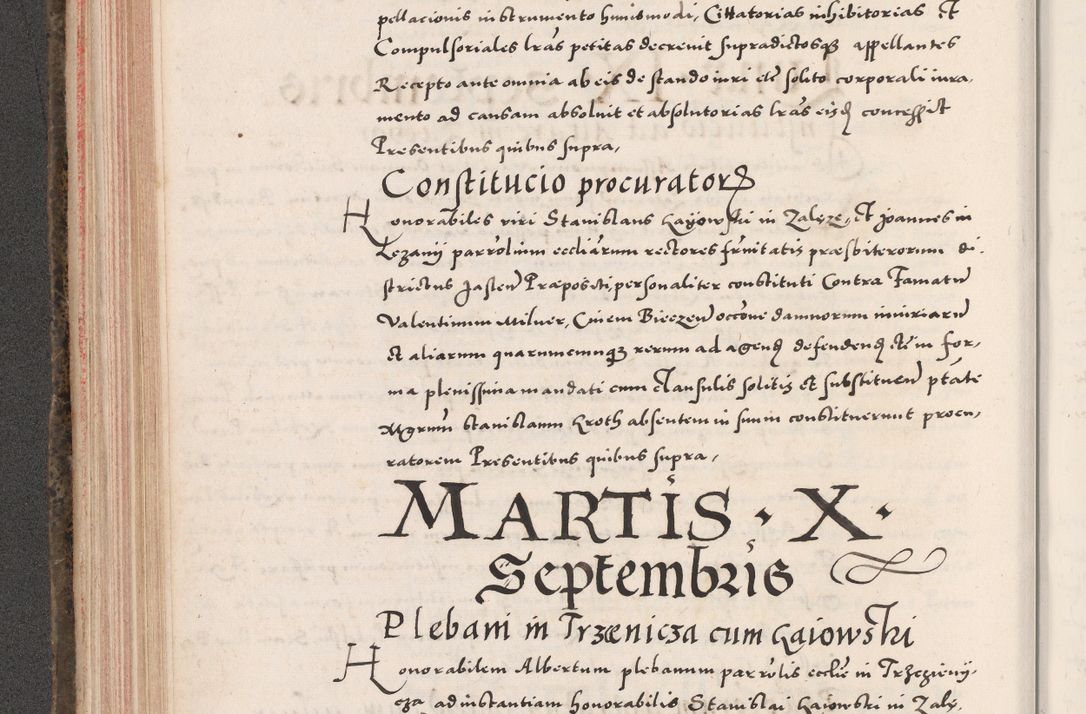 pellacionis instrumento huiusmodi, Cittatorias inhibitorias Et
Compulsoriales lras petitas decrevit supradictosq appellantes
Recepto ante omnia ab eis de stando iuri etc solito corporali iura,
mento ad causam absoluit et absolutorias lras eisd concessit
Presentibus quibus supra,
Constitucio procurator
Honorabiles viri Stanislaus Gayowski in Zalęze, Et Joannes in
Lezanÿ parrolium eccliarum rectores fruitatis præsbiterorum di
strictus Jaslen Præpositi, personaliter constituti Contra Famatu
Valentinum Milner, Civem Bieczen occone damnorum iniuriaru
et aliarum quarumcunq rerum ad agend defendend etc in for,
ma plenissima mandati cum Clausulis solitis et substituen ptate
Mgrum Stanislaum Groth absentem in suum constituerunt procu,
ratorem Presentibus quibus supra,
MARTIS · X ·
Septembris
Plebani in Trzænicza cum Gaiowski
Honorabilem Albertum plebanum parrolis ecclie in Trzezieny,
cza ad instantiam honorabilis Stanislai Gaiowski in Zalę,